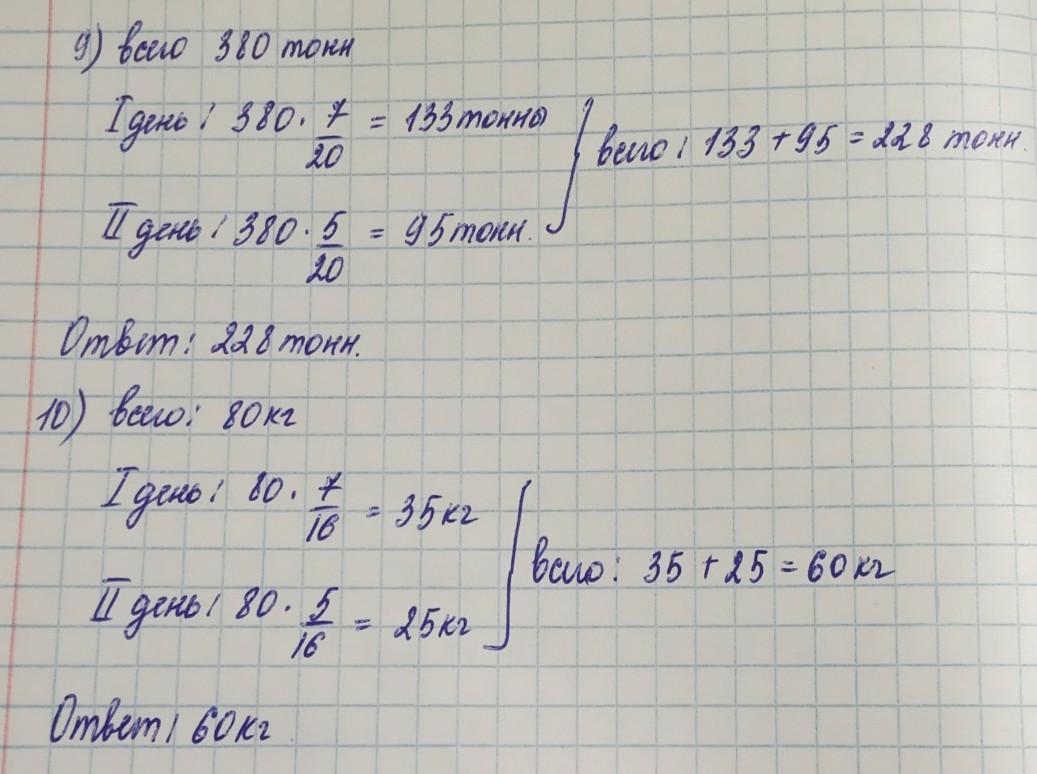 9) всего 380 тонн
I день: 380 · 7/20 = 133 тонны
II день: 380 · 5/20 = 95 тонн.
всего: 133 + 95 = 228 тонн.
Ответ: 228 тонн.
10) всего: 80 кг
I день: 80 · 7/16 = 35 кг
II день: 80 · 5/16 = 25 кг
всего: 35 + 25 = 60 кг
Ответ: 60 кг